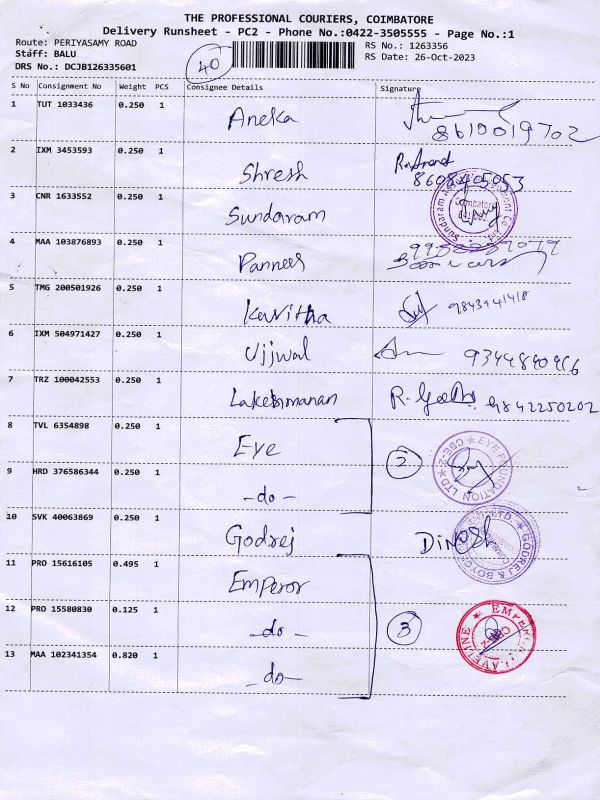 THE PROFESSIONAL COURIERS, COIMBATORE
Delivery Runsheet - PC2 - Phone No.:0422-3505555 - Page No.:1
Route: PERIYASAMY ROAD
Staff: BALU
DRS No.: DCJB126335601
40
RS No.: 1263356
RS Date: 26-Oct-2023
S No Consignment No Weight PCS Consignee Details Signature
1 TUT 1033436 0.250 1 Aneka 8610019702
2 IXM 3453593 0.250 1 Shresh 8608405053
3 CNR 1633552 0.250 1 Sundaram Sundaram Coimbatore
4 MAA 103876893 0.250 1 Panneer
5 TMG 200501926 0.250 1 Kavitha 9843141418
6 IXM 504971427 0.250 1 Ujjwal
7 TRZ 100042553 0.250 1 Lakshmanan 9842250202
8 TVL 6354898 0.250 1 Eye 2 EYE FOUNDATION LTD CBE-2
9 HRD 376586344 0.250 1 -do-
10 SVK 40063869 0.250 1 Godrej Dinesh GODREJ & BOYCE LTD.
11 PRO 15616105 0.495 1 Emperor
12 PRO 15580830 0.125 1 -do- 3
13 MAA 102341354 0.820 1 -do-